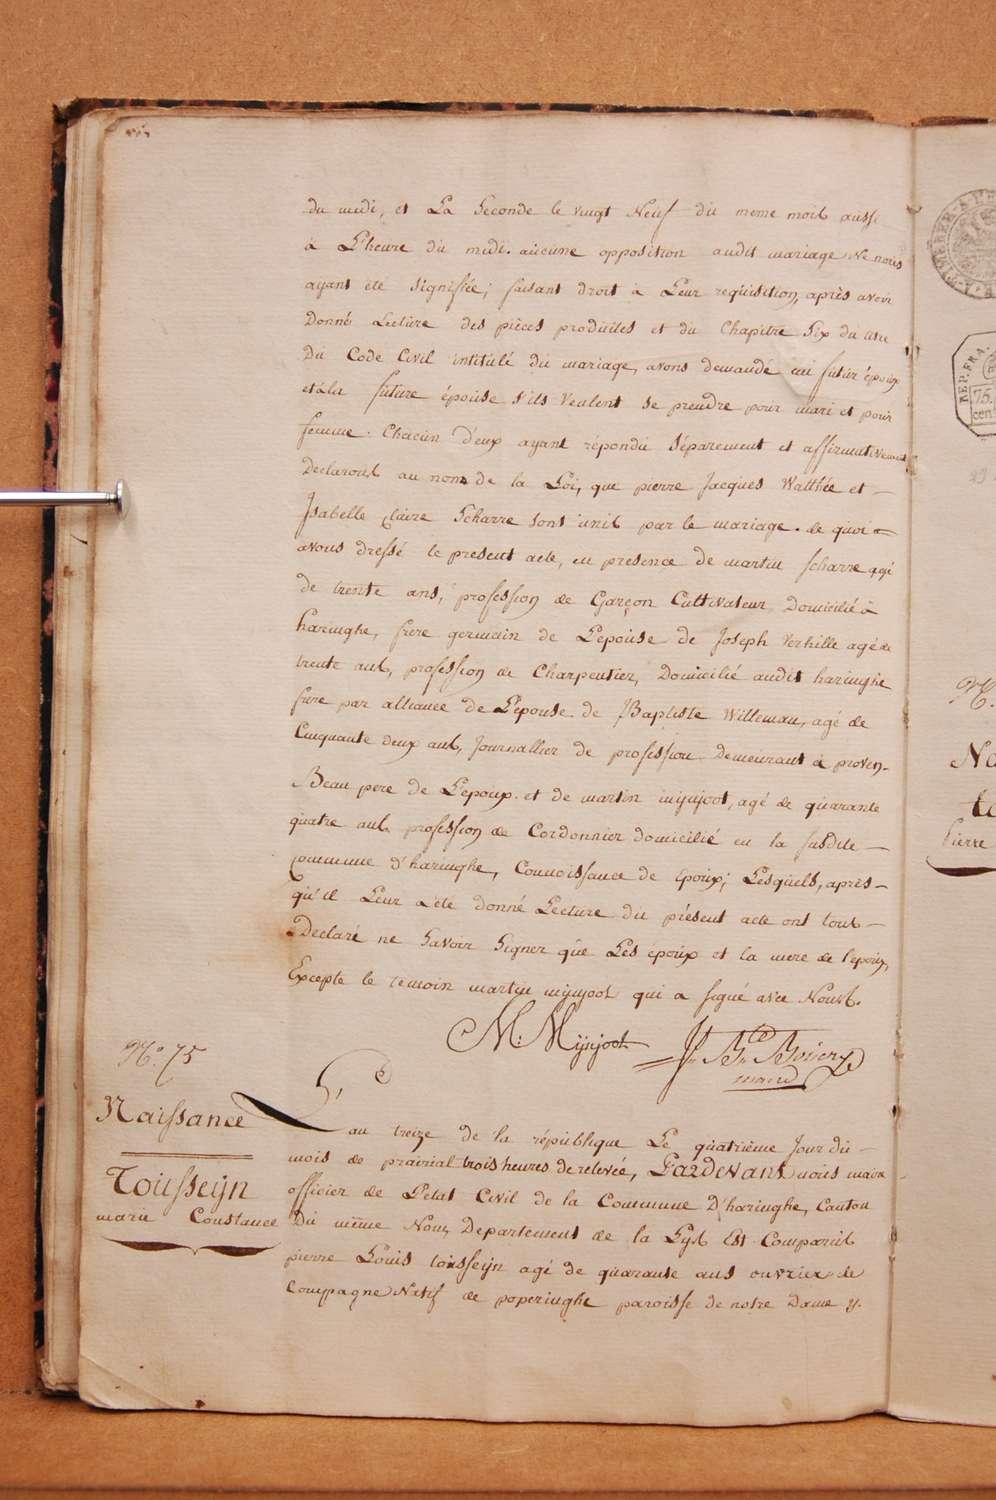 du midi, et La Seconde le vingt Neuf du meme mois aussi
à L'heure du midi. aucune opposition audit mariage Ne nous
ayant eté signifiée; faisant droit à Leur requisition, après avoir
Donné Lecture des pièces produites et du Chapitre Six du titre
Du Code Civil intitulé du mariage, avons demandé au futur époux
et à la future épouse s'ils veulent se prendre pour mari et pour
femme. Chacun d'eux ayant répondu Séparement et affirmativement
Declarons au nom de la Loi, que pierre Jacques Walthée et
Isabelle Claire Scharre sont unis par le mariage. de quoi
avons dressé le present acte, en presence de martin scharre agé
de trente ans, profession de Garçon Cultivateur Domicilié à
haringhe, frere germain de L'epouse de Joseph Verhille agé de
trente ans, profession de Charpentier, Domicilié audit haringhe
frere par alliance de L'epouse de JBaptiste Willeman, agé de
Cinquante deux ans, Journallier de profession demeurant à proven
Beau pere de L'epoux. et de martin mijnjoot, agé de quarante
quatre ans profession de Cordonnier domicilié en la susdite
Commune d'haringhe, Connoissance de Epoux; Lesquels, après
qu'il Leur a été donné Lecture du présent acte ont tous
Declaré ne Savoir Signer que Les époux et la mere de l'epoux,
Excepte le temoin martin mijnjoot qui a signé avec Nous.
M: Mijnjoot
maire
N.º 75
Naissance
Toüsseijn
marie Constance
L'an treize de la république Le quatrième Jour du
mois de prairial trois heures de relevée, Pardevant nous maire
officier de l'etat Civil de la Commune D'haringhe, Canton
Du même Nom, Departement de la Lys Est Comparut
pierre Louis toüsseijn agé de quarante ans ouvrier de
Campagne Natif de poperinghe paroisse de notre Dame y.
REP. FRA.
75.
cen
N.
Na
to
Pierre